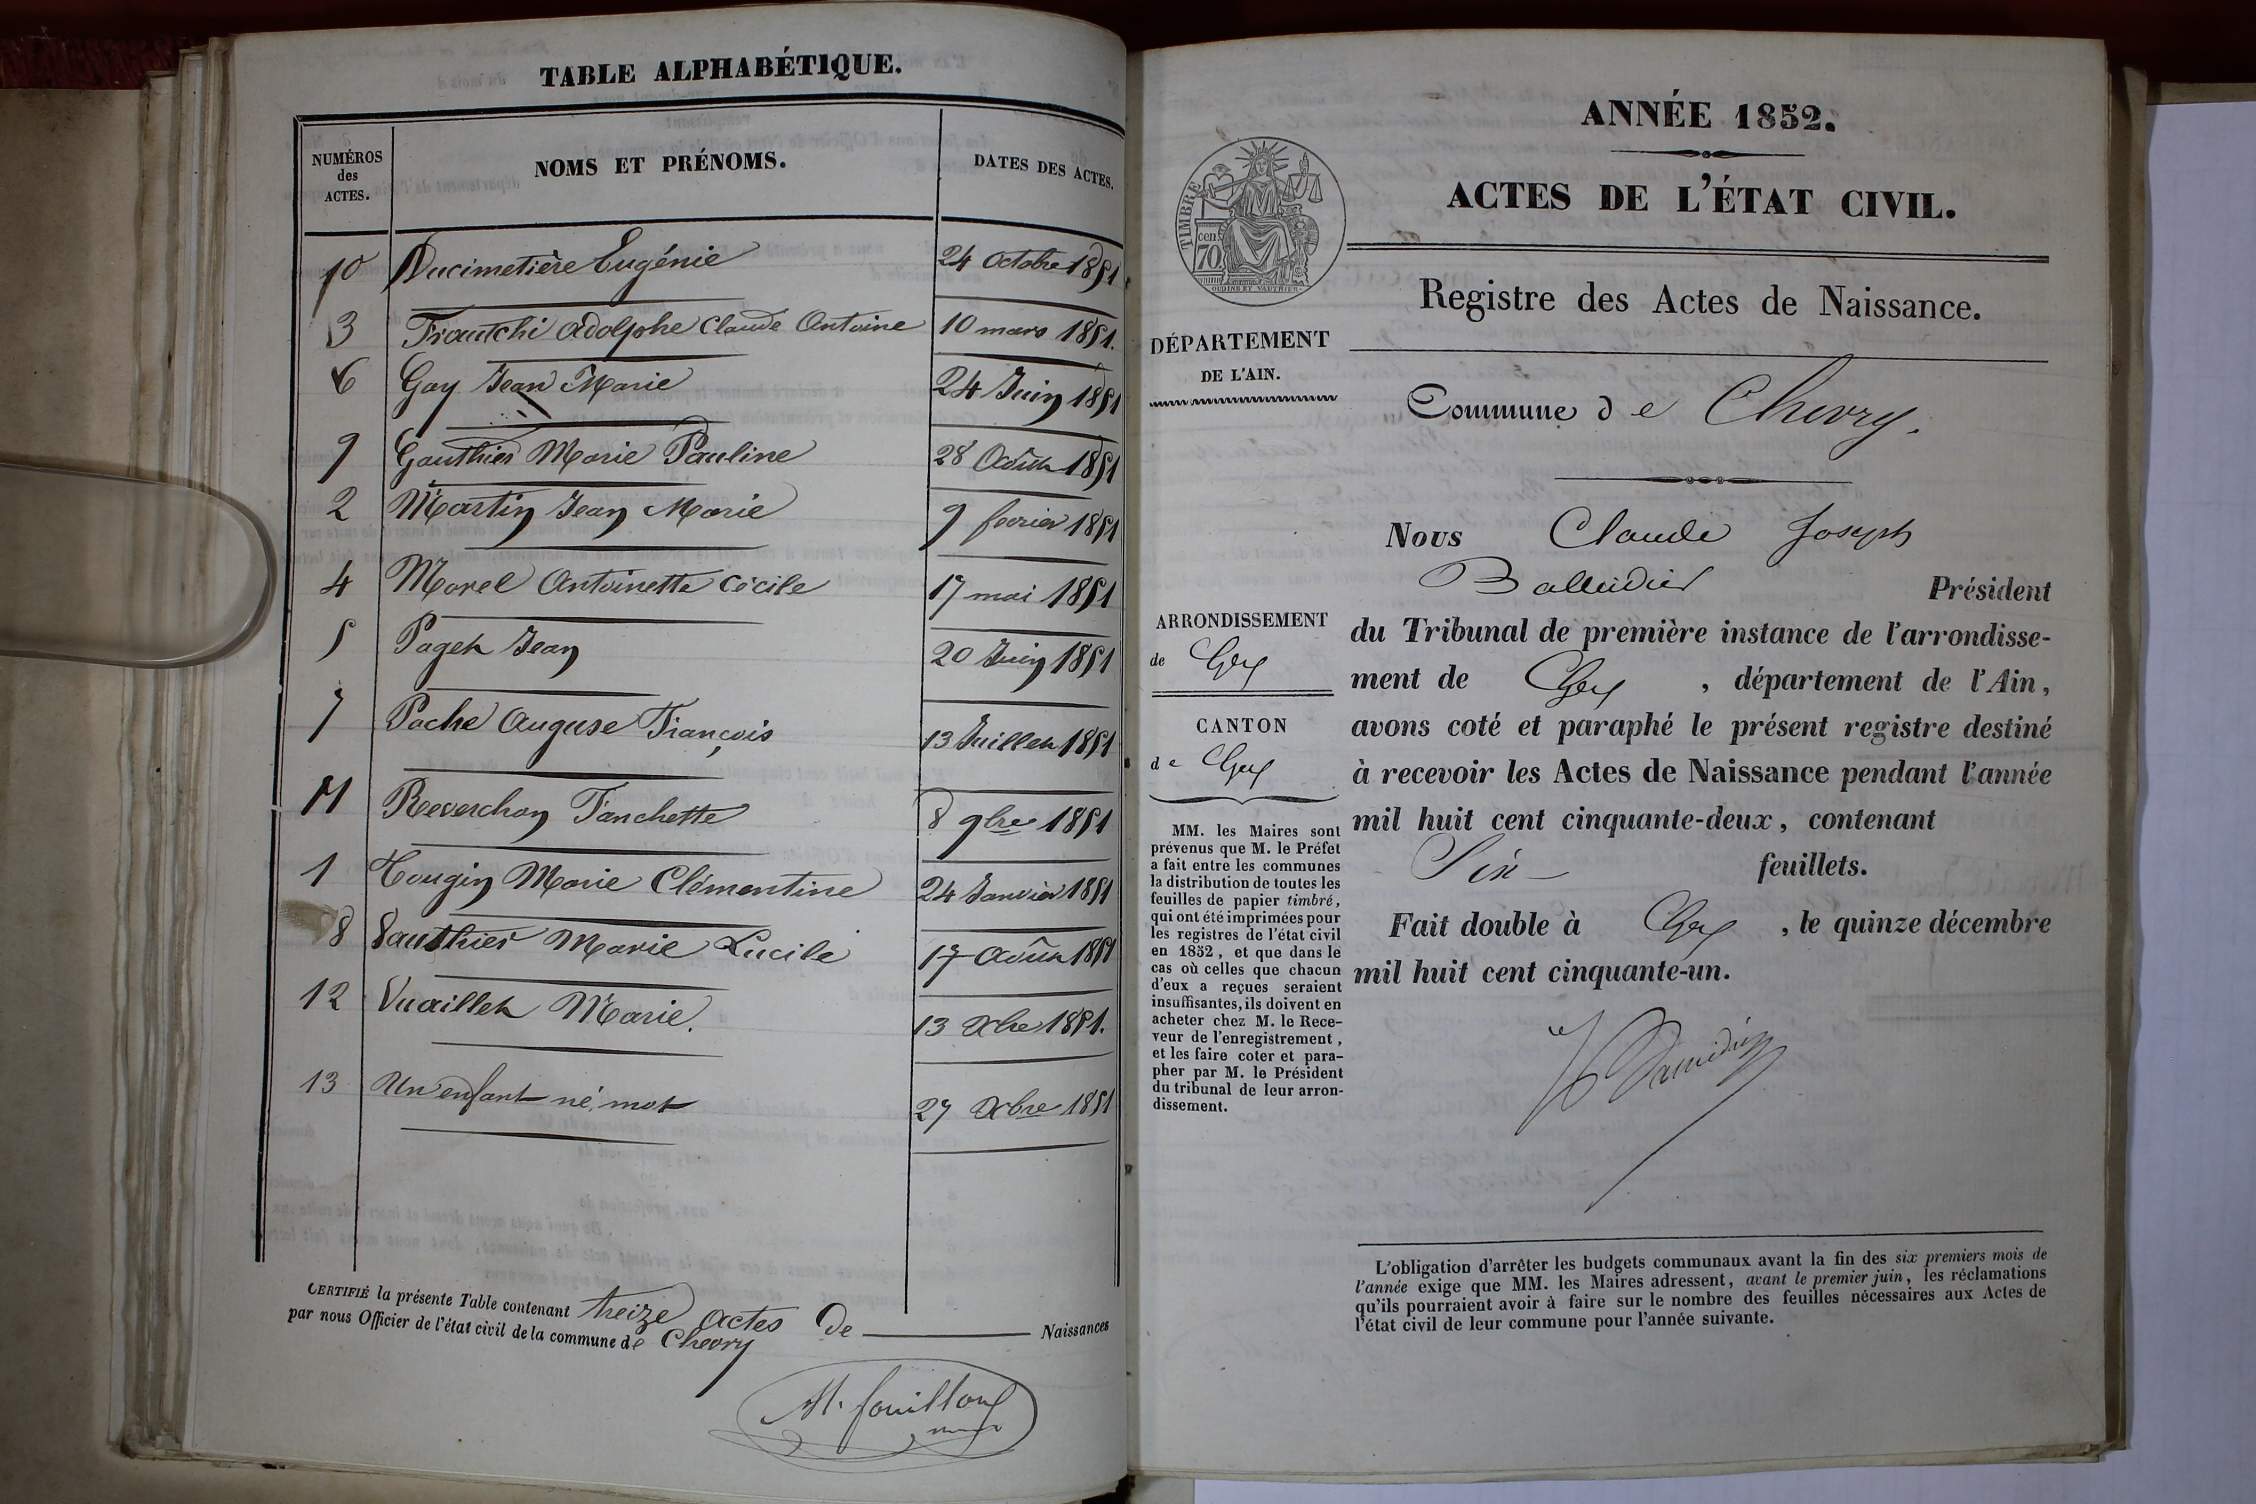 TABLE ALPHABÉTIQUE.
NUMÉROS des ACTES. NOMS ET PRÉNOMS. DATES DES ACTES.
10 Ducimetière Eugénie 24 Octobre 1851
3 Frautchi Adolphe Claude Antoine 10 mars 1851.
6 Gay Jean Marie 24 Juin 1851
9 Gauthier Marie Pauline 28 Août 1851
2 Martin Jean Marie 9 fevrier 1851
4 Morel Antoinette Cécile 17 mai 1851
5 Paget Jean 20 Juin 1851
7 Poche Auguse François 13 Juillet 1851
11 Reverchon Fanchette 8 9bre 1851
1 Tougin Marie Clémentine 24 Janvier 1851
8 Vauthier Marie Lucile 17 Août 1851
12 Vuaillet Marie. 13 Xbre 1851.
13 Un enfant né mot 27 Xbre 1851
CERTIFIÉ la présente Table contenant treize actes De Naissances
par nous Officier de l'état civil de la commune de Chevry
M. fouilloux
ANNÉE 1852.
ACTES DE L'ÉTAT CIVIL.
TIMBRE
cen.
70
OUDINE ET GAUTHIER
Registre des Actes de Naissance.
DÉPARTEMENT
DE L'AIN.
Commune de Chevry.
Nous Claude Joseph
Président
ARRONDISSEMENT
de Gex
du Tribunal de première instance de l'arrondisse-
ment de Gex, département de l'Ain,
avons coté et paraphé le présent registre destiné
à recevoir les Actes de Naissance pendant l'année
mil huit cent cinquante-deux, contenant
Six feuillets.
Fait double à Gex, le quinze décembre
mil huit cent cinquante-un.
CANTON
de Gex
MM. les Maires sont
prévenus que M. le Préfet
a fait entre les communes
la distribution de toutes les
feuilles de papier timbré,
qui ont été imprimées pour
les registres de l'état civil
en 1852, et que dans le
cas où celles que chacun
d'eux a reçues seraient
insuffisantes, ils doivent en
acheter chez M. le Rece-
veur de l'enregistrement,
et les faire coter et para-
pher par M. le Président
du tribunal de leur arron-
dissement.
L'obligation d'arrêter les budgets communaux avant la fin des six premiers mois de
l'année exige que MM. les Maires adressent, avant le premier juin, les réclamations
qu'ils pourraient avoir à faire sur le nombre des feuilles nécessaires aux Actes de
l'état civil de leur commune pour l'année suivante.